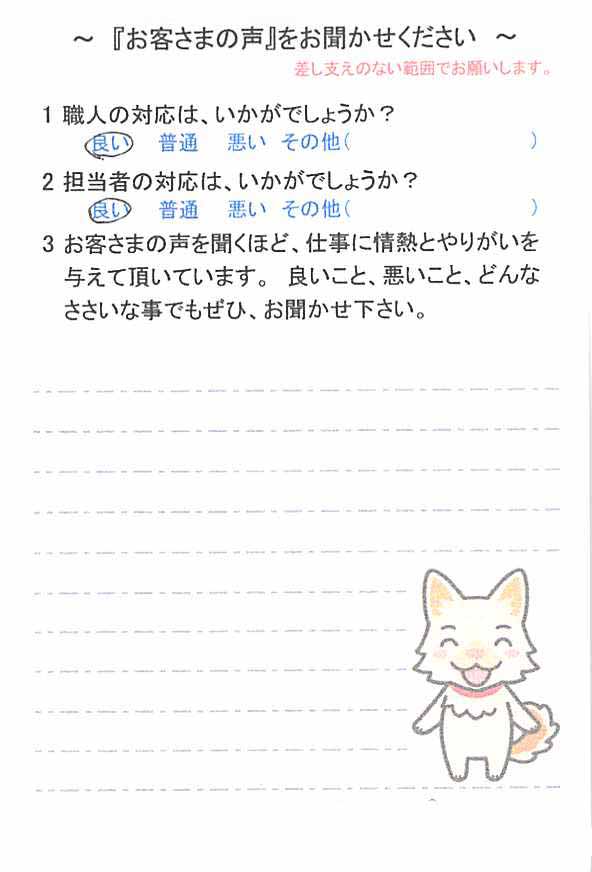 ～ 『お客さまの声』をお聞かせください ～
差し支えのない範囲でお願いします。
1 職人の対応は、いかがでしょうか？
良い 普通 悪い その他( )
2 担当者の対応は、いかがでしょうか？
良い 普通 悪い その他( )
3 お客さまの声を聞くほど、仕事に情熱とやりがいを
与えて頂いています。 良いこと、悪いこと、どんな
ささいな事でもぜひ、お聞かせ下さい。